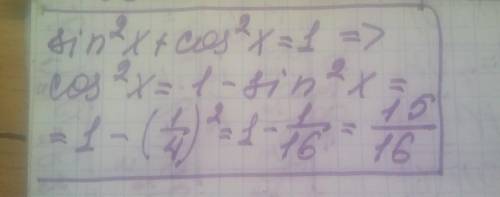 sin²x + cos²x = 1 =>
cos²x = 1 - sin²x =
= 1 - (1/4)² = 1 - 1/16 = 15/16